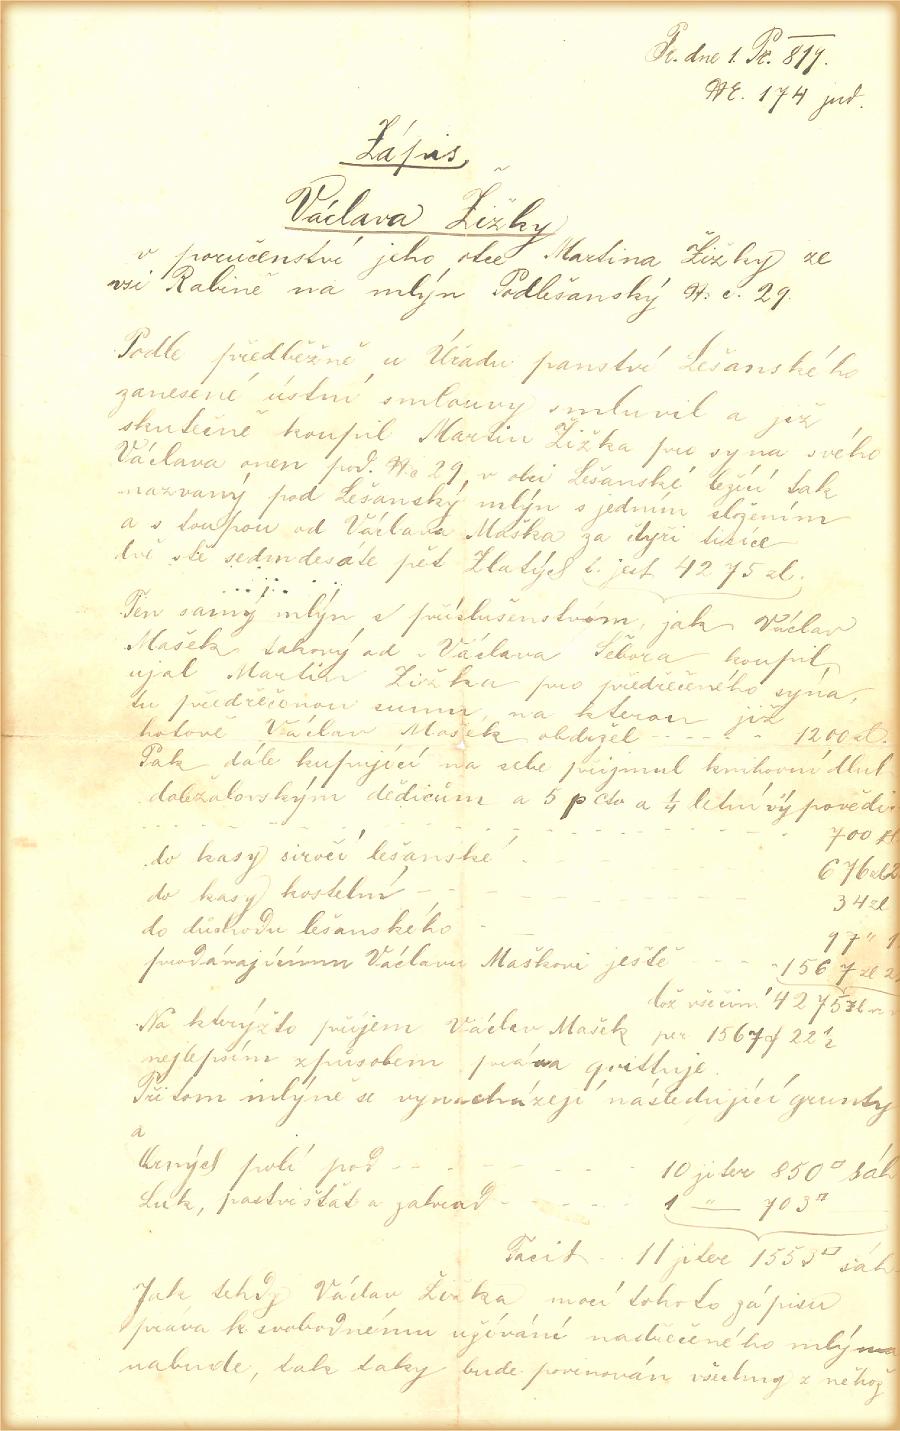 Pr. dne 1. Pr. 819.
NE. 174 jud.
Zápis
Václava Žižky
v poručenství jeho otce Martina Žižky ze
vsi Rabině na mlýn Podlešanský N: c. 29.
Podle předběžně u Úřadu panství Lešanského
zanesené ústní smlouvy smluvil a již
skutečně koupil Martin Žižka pro syna svého
Václava onen pod. Nc 29 v obci Lešanské ležící tak
nazvaný pod Lešanský mlýn s jedním složením
a s toupou od Václava Maška za čtyři tisíce
dvě stě sedmdesáte pět Zlatých t. jest 4275 zl.
Ten samý mlýn s příslušenstvím, jak Václav
Mašek takový od Václava Šebora koupil,
ujal Martin Žižka pro předřečeného syna,
tu předřečenou sumu, na kterou již
hotově Václav Mašek obdržel - - - - - 1200 zl.
Pak dále kupující na sebe přijmul knihovní dluh
dobžalovským dědicům a 5 pcto a ¼ letní výpovědi
700 zl
do kasy sirotčí lešanské 676 zl 2
do kasy kostelní 34 zl
do důchodu lešanského 97 " 1
prodávajícímu Václavu Maškovi ještě 1567 zl 2
tož všecím 4275 zl
Na kterýžto příjem Václav Mašek per 1567 f 22 ½
nejlepším způsobem práva qvittuje.
Při tom mlýně se vynacházejí následující grunty
a
Orných polí pod - - - 10 jiter 850□ sáh
Luk, pastvištät a zahrad - - - 1 " 703□
Facit - - 11 jiter 1553□ sáh
Jak tehdy Václav Žižka mocí tohoto zápisu
práva k svobodnému užívání nadřečeného mlýna
nabude, tak taky bude povinován všechny z něhož